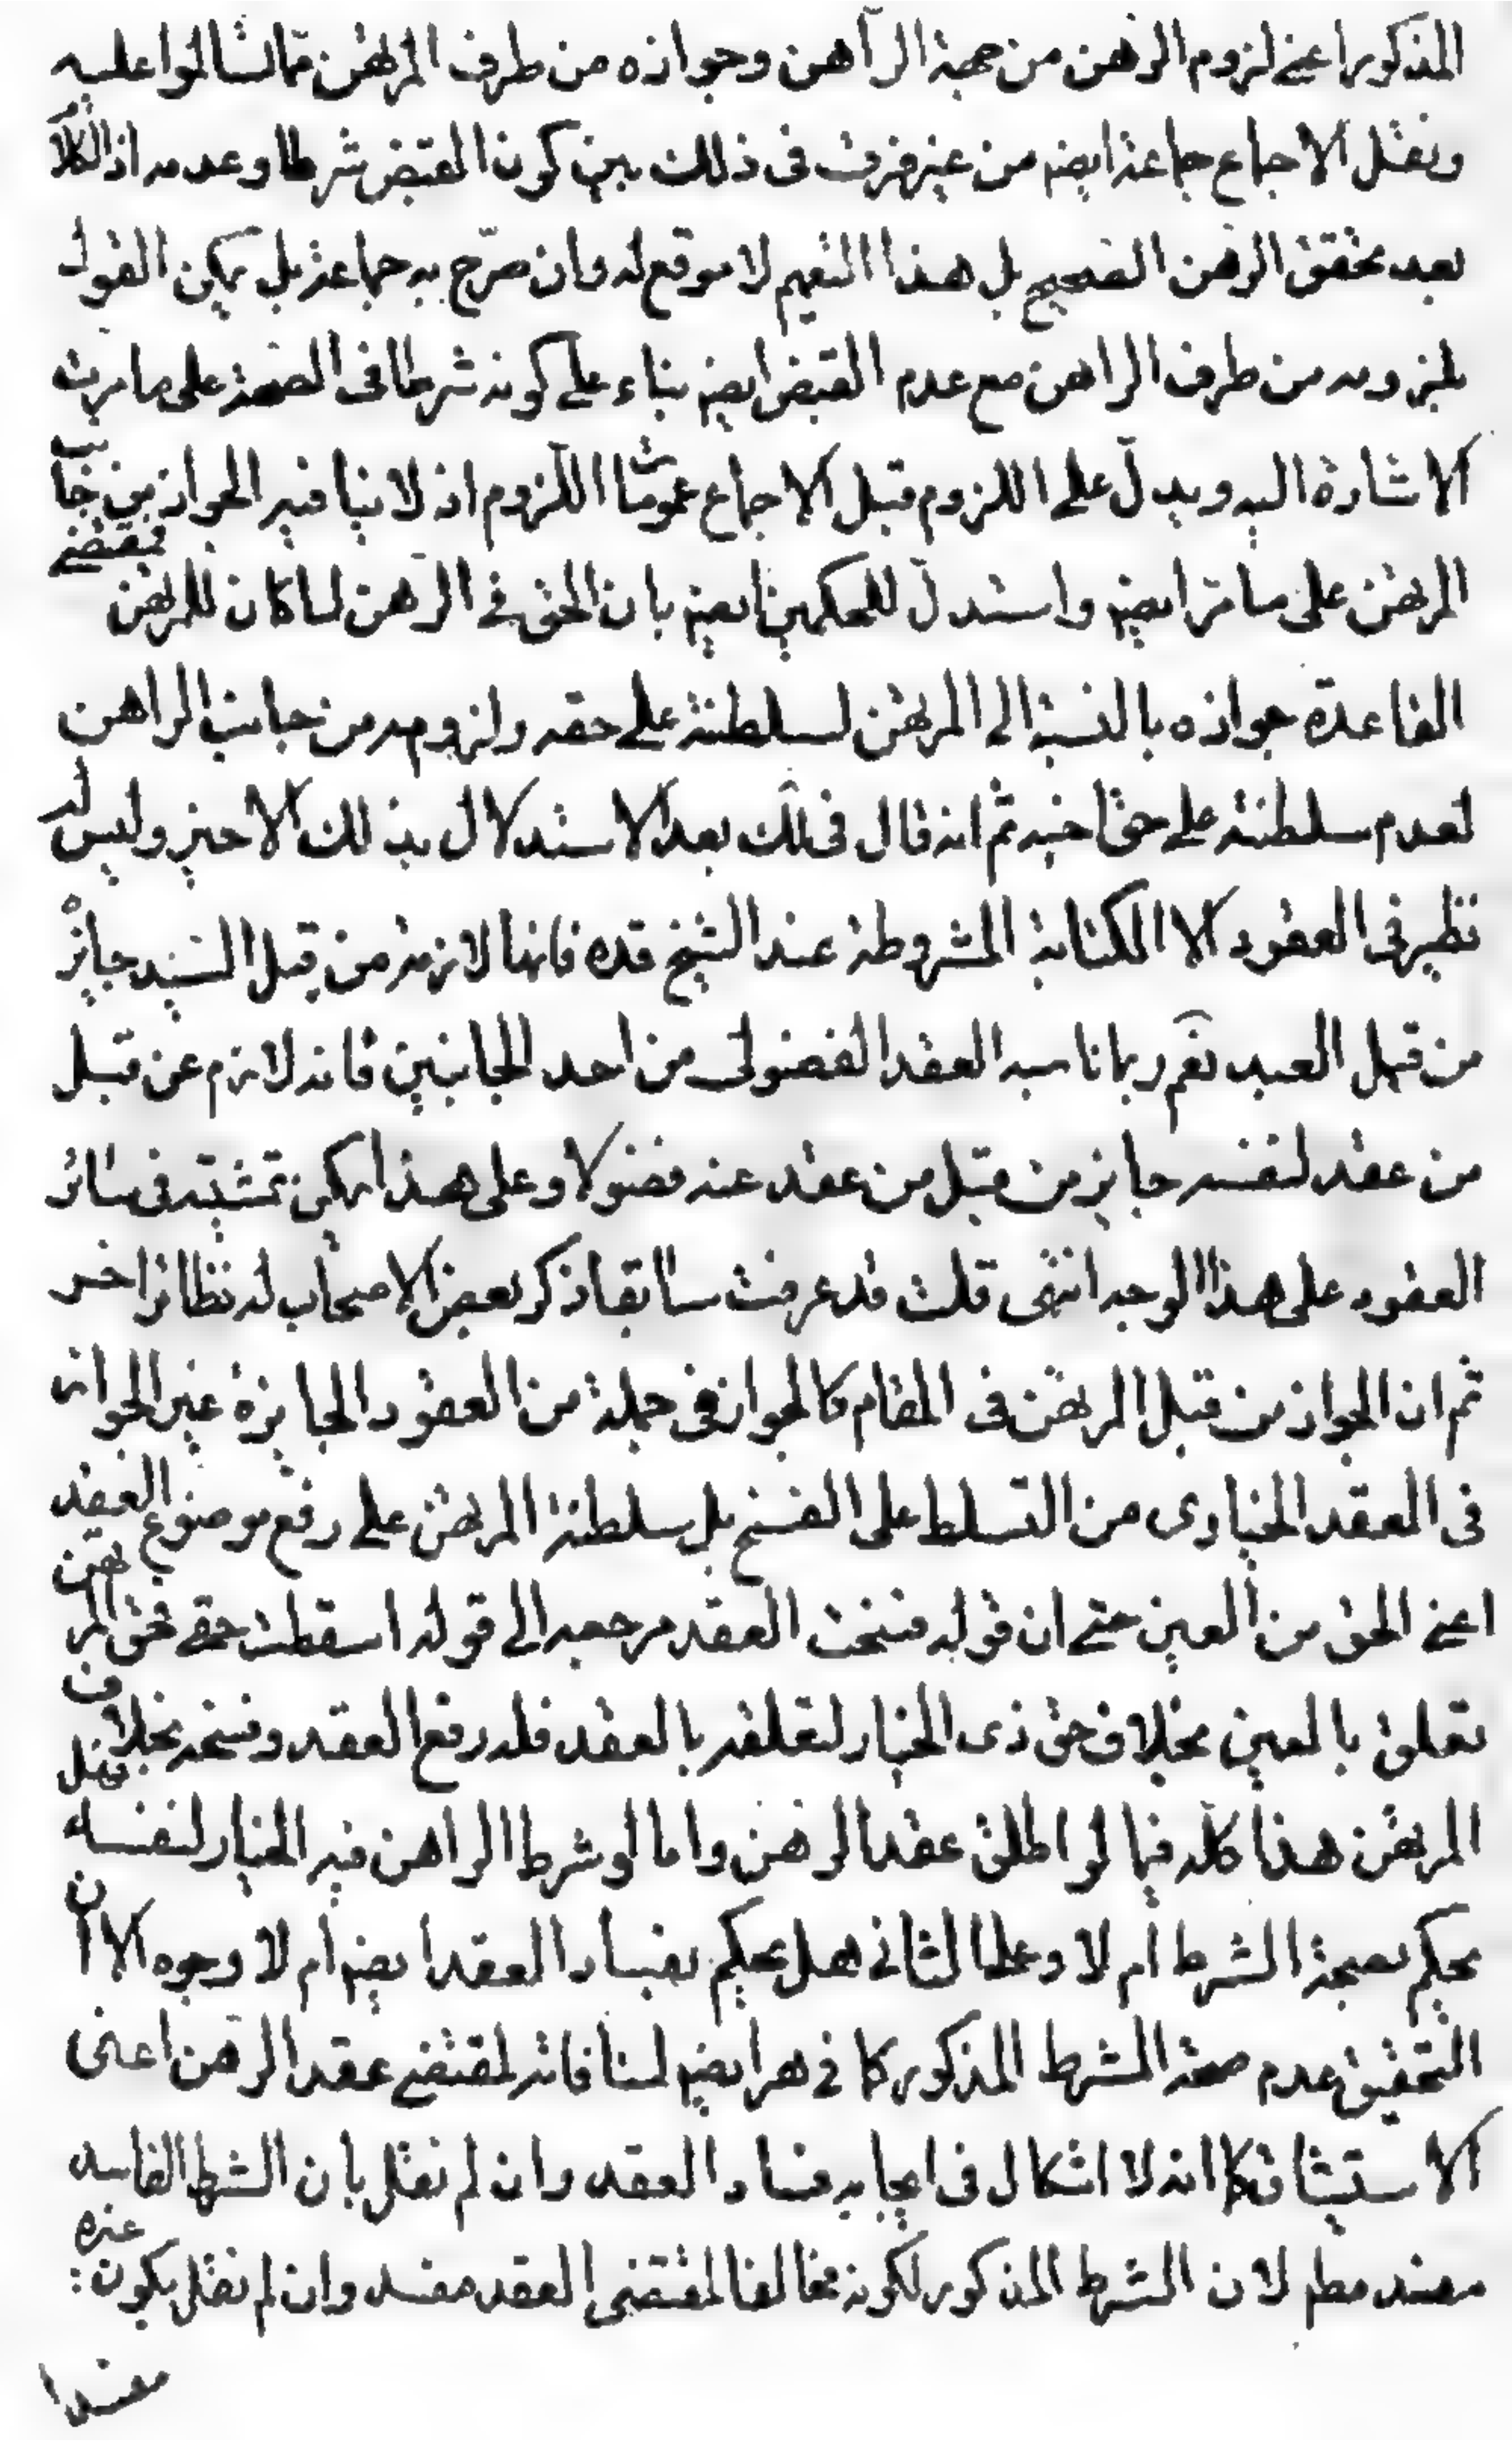 المذكور اعنى لزوم الرهن من جهة الراهن وجوازه من طرف المرتهن مما تسالموا عليه
ونقل الاجماع جماعة ايضم من غير فرق فى ذلك بين كون القبض شرطا وعدمه اذ الكلام
بعد تحقق الرهن الصحيح بل هذا التعميم لا موقع له وان صرّح به جماعة بل يمكن القول
بلزومه من طرف الراهن مع عدم القبض ايضم بناء على كونه شرطا فى الصحة على ما مرت
الاشارة اليه ويدلّ على اللزوم قبل الاجماع عمومات اللزوم اذ لا ينافيه الجواز من جانب
المرتهن على ما مر ايضم واستدلّ للحكمين ايضم بان الحق فى الرهن لما كان للمرتهن فمقتضى
القاعدة جوازه بالنسبة الى المرتهن لسلطنته على حقه ولزومه من جانب الراهن
لعدم سلطنته على حق اخيه ثم انه قال فى لك بعد الاستدلال بذلك الاخير وليس له
نظير فى العقود الا الكتابة المشروطة عند الشيخ قده فانها لازمة من قبل السيد جائزة
من قبل العبد نعم ربما ناسبه العقد الفضولى من احد الجانبين فانه لازم من قبل
من عقد لنفسه جايز من قبل من عقد عنه فضولا وعلى هذا يمكن تمشيته فى سائر
العقود على هذا الوجه انتهى قلت قد عرفت سابقا ذكر بعض الاصحاب له نظائر اخر
ثم ان الجواز من قبل المرتهن فى المقام كالجواز فى جملة من العقود الجايزة غير الجواز
فى العقد الخيارى من التسلط على الفسخ بل سلطنة المرتهن على رفع موضوع العقد
اعنى الحق من العين حتى ان قوله فسخت العقد مرجعه الى قوله اسقطت حقى فحق المرتهن
تعلق بالعين بخلاف حق ذى الخيار لتعلقه بالعقد فله رفع العقد وفسخه بخلاف
المرتهن هذا كله فيما لو اطلق عقد الرهن واما لو شرط الراهن فيه الخيار لنفسه فهل
يحكم بصحة الشرط ام لا وعلى الثانى هل يحكم بفساد العقد ايضم ام لا وجوه الا ان
التحقيق عدم صحة الشرط المذكور كما فى هر ايضم لمنافاته لمقتضى عقد الرهن اعنى
الاستيثاق كما انه لا اشكال فى ايجابه فساد العقد وان لم نقل بان الشرط الفاسد
مفسد مطم لان الشرط المذكور لكونه مخالفا لمقتضى العقد مفسد وان لم نقل بكون غيره
مفسدا